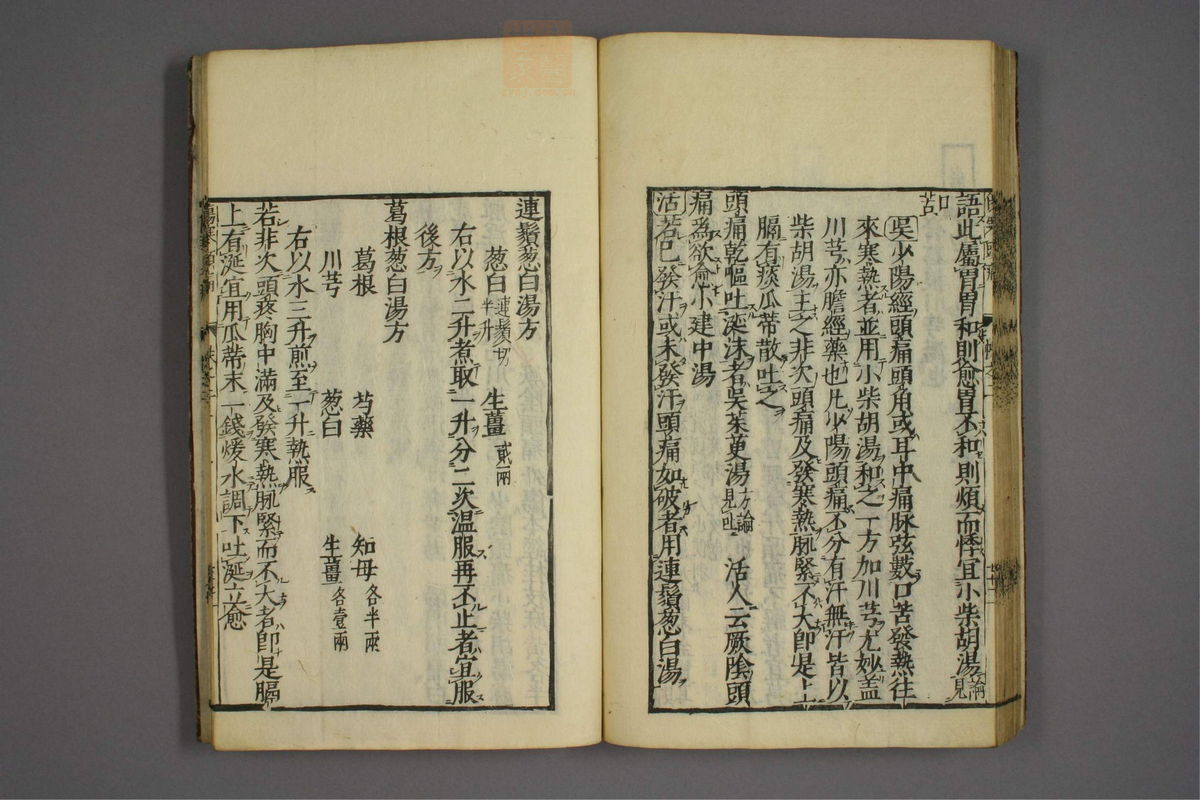 語此屬胃胃和則愈胃不和則煩而悸宜小柴胡湯見
如
吳少陽經頭痛頭角或耳中痛脉弦數口苦發熱往
來寒熱者並用小柴胡湯和之一方加川芎尤妙蓋
川芎亦膽經藥也凡少陽頭痛不分有汗無汗皆以
柴胡湯主之非次頭痛及發寒熱脈緊不大卽是上
膈有痰瓜蒂散吐之
頭痛乾嘔吐涎沫者吳茱萸湯方論見吐 活人云厥陰頭
痛爲欲愈小建中湯
活若已發汗或未發汗頭痛如破者用連鬚葱白湯
連鬚葱白湯方
葱白連鬚切半升 生薑貳兩
右以水二升煮取一升分二次温服再不止者宜服
後方
葛根葱白湯方
葛根 芍藥 知母各半兩
川芎 葱白 生薑各壹兩
右以水三升煎至一升熱服
若非次頭疼胸中滿及發寒熱脈緊而不大者卽是膈
上有涎宜用瓜蒂末一錢煖水調下吐涎立愈